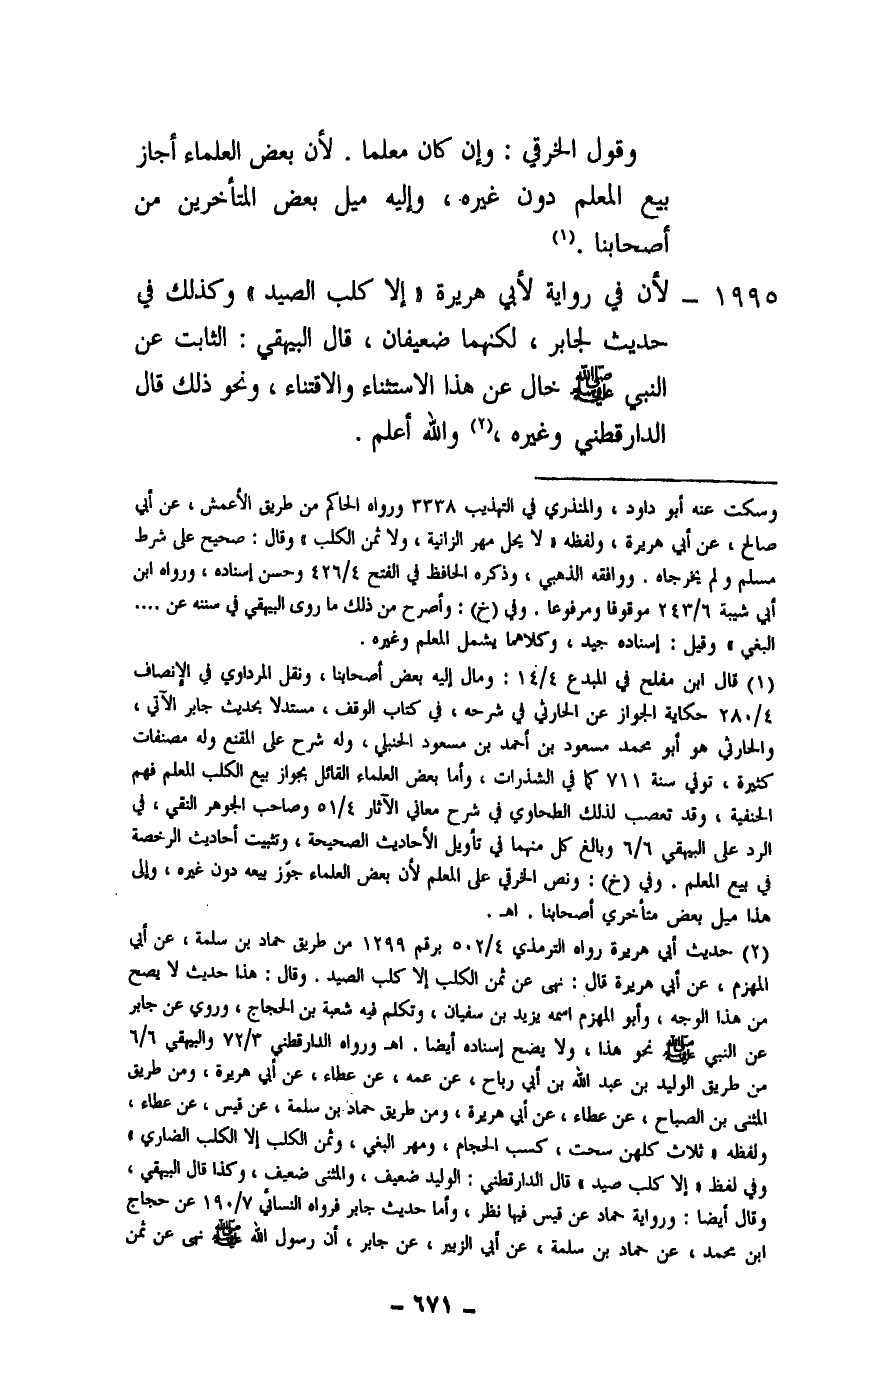 وقول الخرقي : وإن كان معلما . لأن بعض العلماء أجاز
بيع المعلم دون غيره ، وإليه ميل بعض المتأخرين من
أصحابنا .(١)
١٩٩٥ – لأن في رواية لأبي هريرة « إلا كلب الصيد » وكذلك في
حديث لجابر ، لكنهما ضعيفان ، قال البيهقي : الثابت عن
النبي ﷺ خال عن هذا الاستثناء والاقتناء ، ونحو ذلك قال
الدارقطني وغيره ،(٢) والله أعلم .
وسكت عنه أبو داود ، والمنذري في التهذيب ٣٣٣٨ ورواه الحاكم من طريق الأعمش ، عن أبي
صالح ، عن أبي هريرة ، ولفظه « لا يحل مهر الزانية ، ولا ثمن الكلب » وقال : صحيح على شرط
مسلم و لم يخرجاه . ووافقه الذهبي ، وذكره الحافظ في الفتح ٤٢٦/٤ وحسن إسناده ، ورواه ابن
أبي شيبة ٢٤٣/٦ موقوفا ومرفوعا . وفي (خ) : وأصرح من ذلك ما روى البيهقي في سننه عن ....
البغي » وقيل : إسناده جيد ، وكلاهما يشمل المعلم وغيره .
(١) قال ابن مفلح في المبدع ١٤/٤ : ومال إليه بعض أصحابنا ، ونقل المرداوي في الإنصاف
٢٨٠/٤ حكاية الجواز عن الحارثي في شرحه ، في كتاب الوقف ، مستدلا بحديث جابر الآتي ،
والحارثي هو أبو محمد مسعود بن أحمد بن مسعود الحنبلي ، وله شرح على المقنع وله مصنفات
كثيرة ، توفي سنة ٧١١ كما في الشذرات ، وأما بعض العلماء القائل بجواز بيع الكلب المعلم فهم
الحنفية ، وقد تعصب لذلك الطحاوي في شرح معاني الآثار ٥١/٤ وصاحب الجوهر النقي ، في
الرد على البيهقي ٦/٦ وبالغ كل منهما في تأويل الأحاديث الصحيحة ، وتثبيت أحاديث الرخصة
في بيع المعلم . وفي (خ) : ونص الخرقي على المعلم لأن بعض العلماء جوّز بيعه دون غيره ، وإلى
هذا ميل بعض متأخري أصحابنا . اهـ .
(٢) حديث أبي هريرة رواه الترمذي ٥٠٢/٤ برقم ١٢٩٩ من طريق حماد بن سلمة ، عن أبي
المهزم ، عن أبي هريرة قال : نهى عن ثمن الكلب إلا كلب الصيد . وقال : هذا حديث لا يصح
من هذا الوجه ، وأبو المهزم اسمه يزيد بن سفيان ، وتكلم فيه شعبة بن الحجاج ، وروي عن جابر
عن النبي ﷺ نحو هذا ، ولا يضح إسناده أيضا . اهـ ورواه الدارقطني ٧٢/٣ والبيهقي ٦/٦
من طريق الوليد بن عبد الله بن أبي رباح ، عن عمه ، عن عطاء ، عن أبي هريرة ، ومن طريق
المثنى بن الصباح ، عن عطاء ، عن أبي هريرة ، ومن طريق حماد بن سلمة ، عن قيس ، عن عطاء ،
ولفظه « ثلاث كلهن سحت ، كسب الحجام ، ومهر البغي ، وثمن الكلب إلا الكلب الضاري »
وفي لفظ « إلا كلب صيد » قال الدارقطني : الوليد ضعيف ، والمثنى ضعيف ، وكذا قال البيهقي ،
وقال أيضا : ورواية حماد عن قيس فيها نظر ، وأما حديث جابر فرواه النسائي ١٩٠/٧ عن حجاج
ابن محمد ، عن حماد بن سلمة ، عن أبي الزبير ، عن جابر ، أن رسول الله ﷺ نهى عن ثمن
– ٦٧١ –